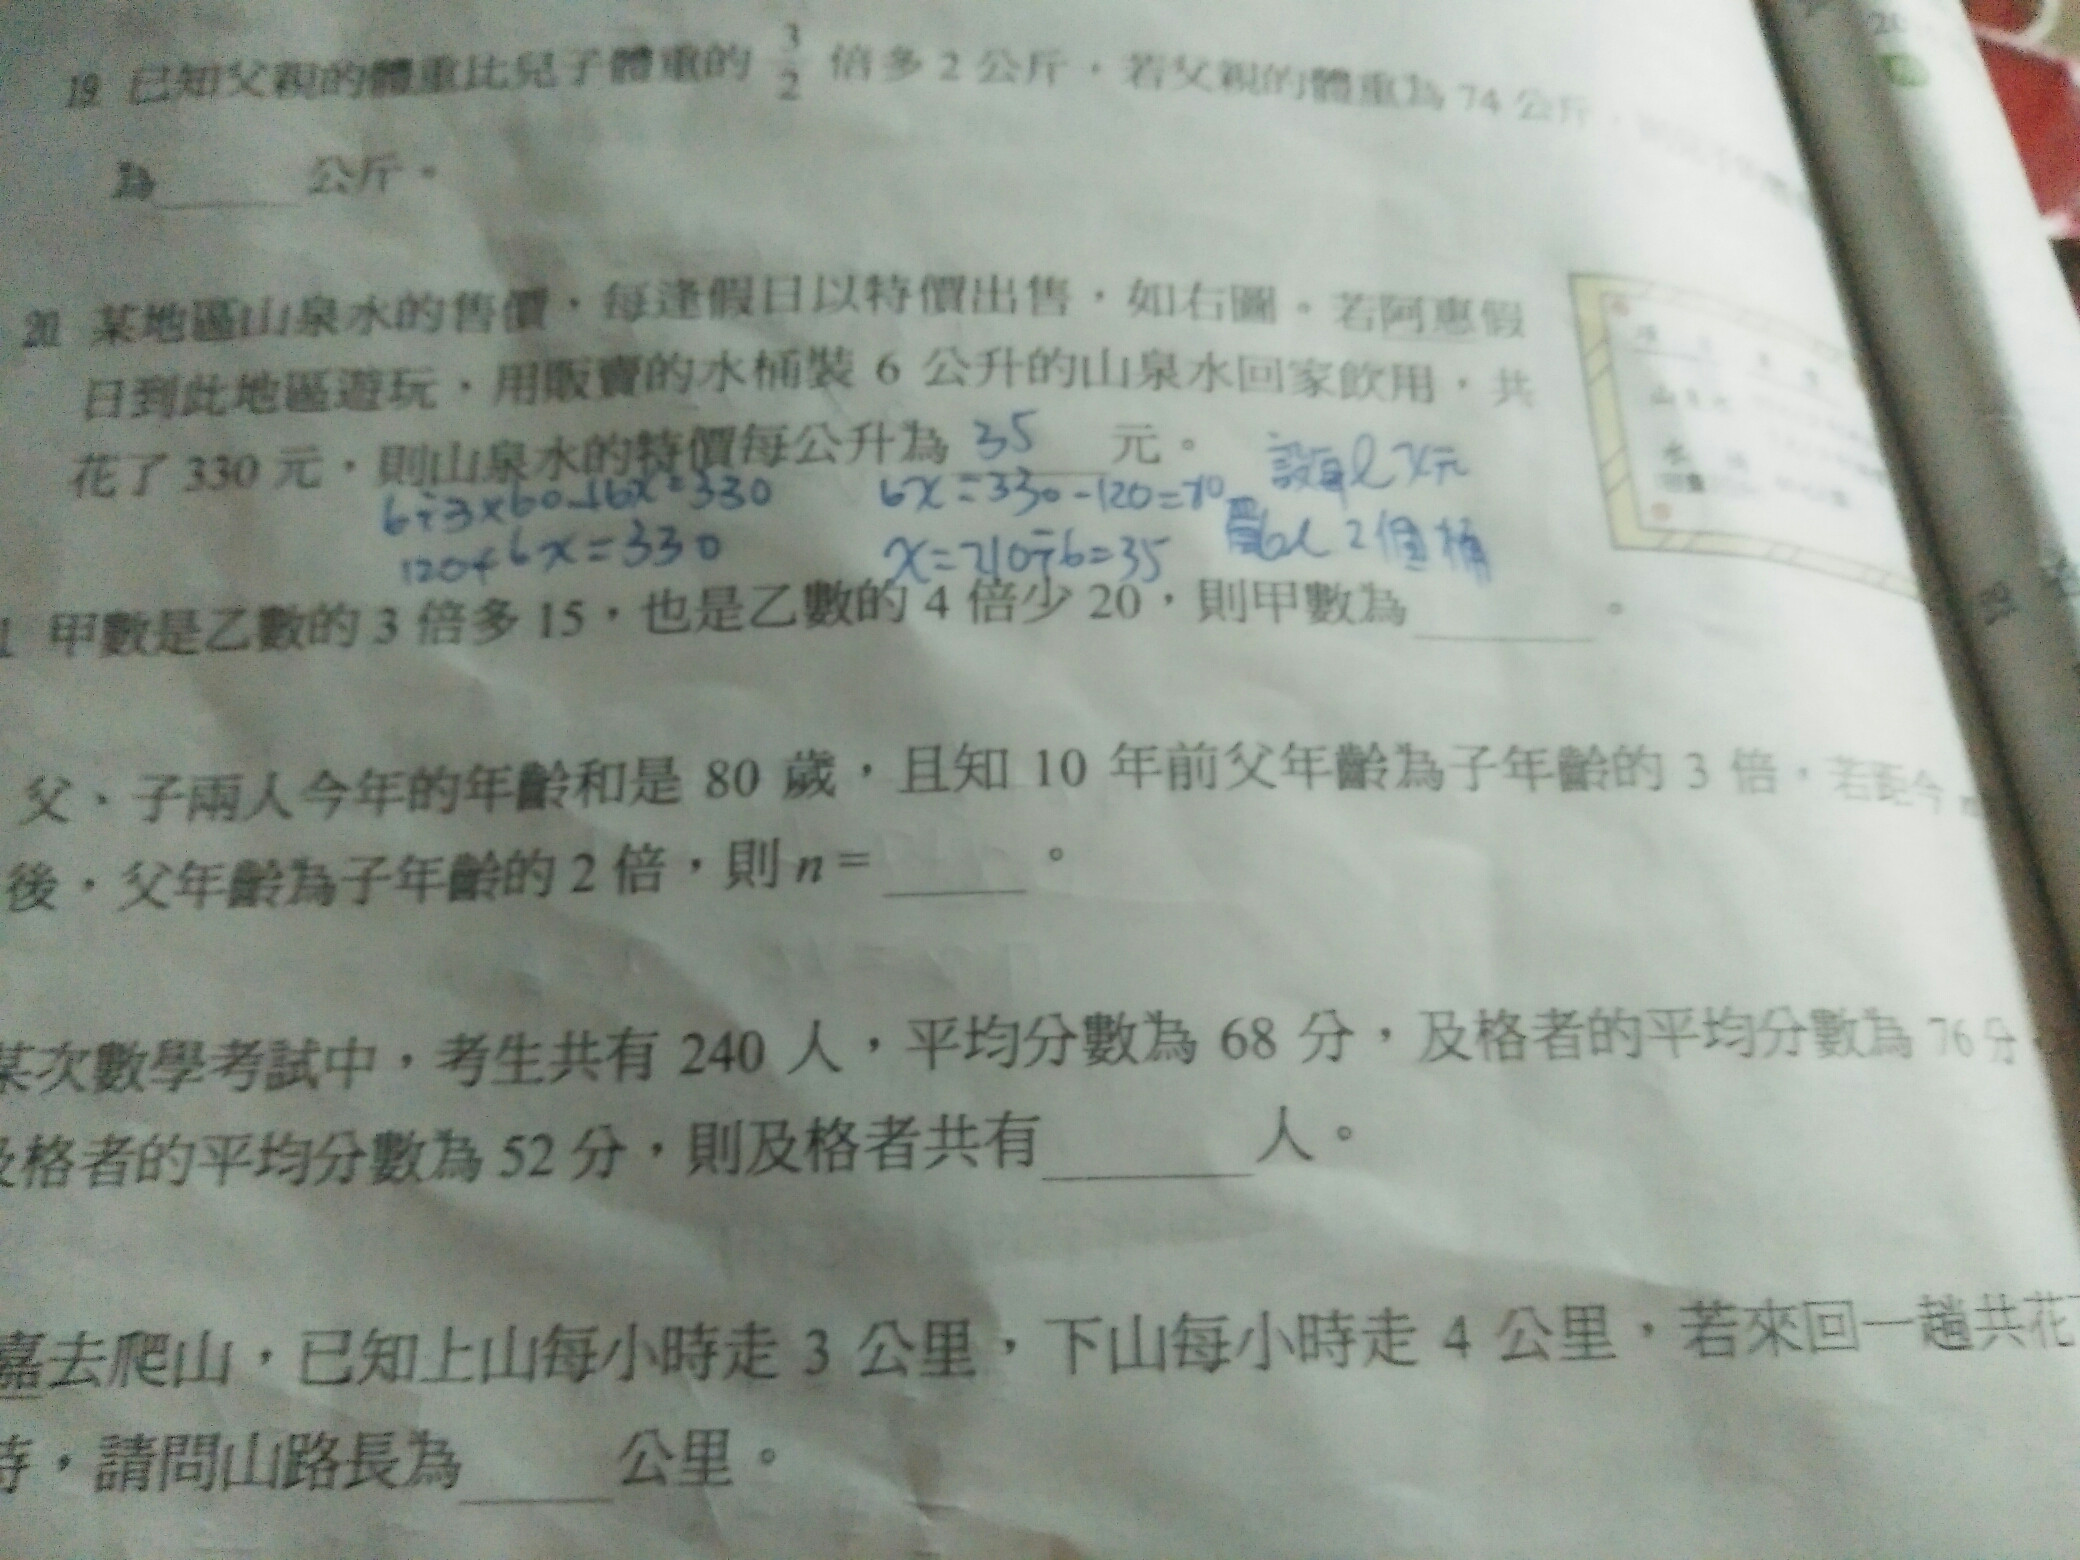 19 已知父親的體重比兒子體重的 3/2 倍多 2 公斤，若父親的體重為 74 公斤，
為____公斤。
20 某地區山泉水的售價，每逢假日以特價出售，如右圖。若阿惠假
日到此地區遊玩，用販賣的水桶裝 6 公升的山泉水回家飲用，共
花了 330 元，則山泉水的特價每公升為 35 元。
設每l x元
6÷3×60+6x=330
6x=330-120=210
買6l 2個桶
120+6x=330
x=210÷6=35
1 甲數是乙數的 3 倍多 15，也是乙數的 4 倍少 20，則甲數為____。
父、子兩人今年的年齡和是 80 歲，且知 10 年前父年齡為子年齡的 3 倍，若距今 n
後，父年齡為子年齡的 2 倍，則 n =____。
某次數學考試中，考生共有 240 人，平均分數為 68 分，及格者的平均分數為 76 分
及格者的平均分數為 52 分，則及格者共有____人。
嘉去爬山，已知上山每小時走 3 公里，下山每小時走 4 公里，若來回一趟共花
時，請問山路長為____公里。
山泉水